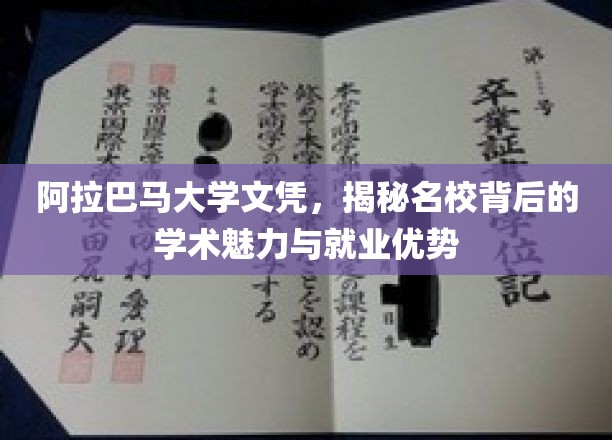 阿拉巴马大学文凭，揭秘名校背后的
学术魅力与就业优势
第 号
卒業証 位記
本学商学部 定の課程を
修めて本学 ことを認め
学士(商学)の する
日生
平成
東京国際大学 田村愛理
東京国際大 長田尻嗣夫